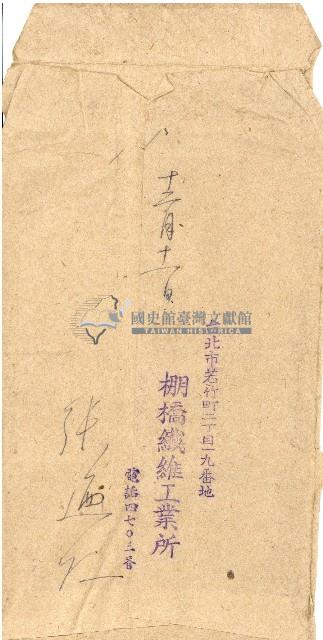 臺北市若竹町二丁目一九番地
棚橋纖維工業所
電話四七〇三番
十二月十一日
張
國史館臺灣文獻館
TAIWAN HISTORICA